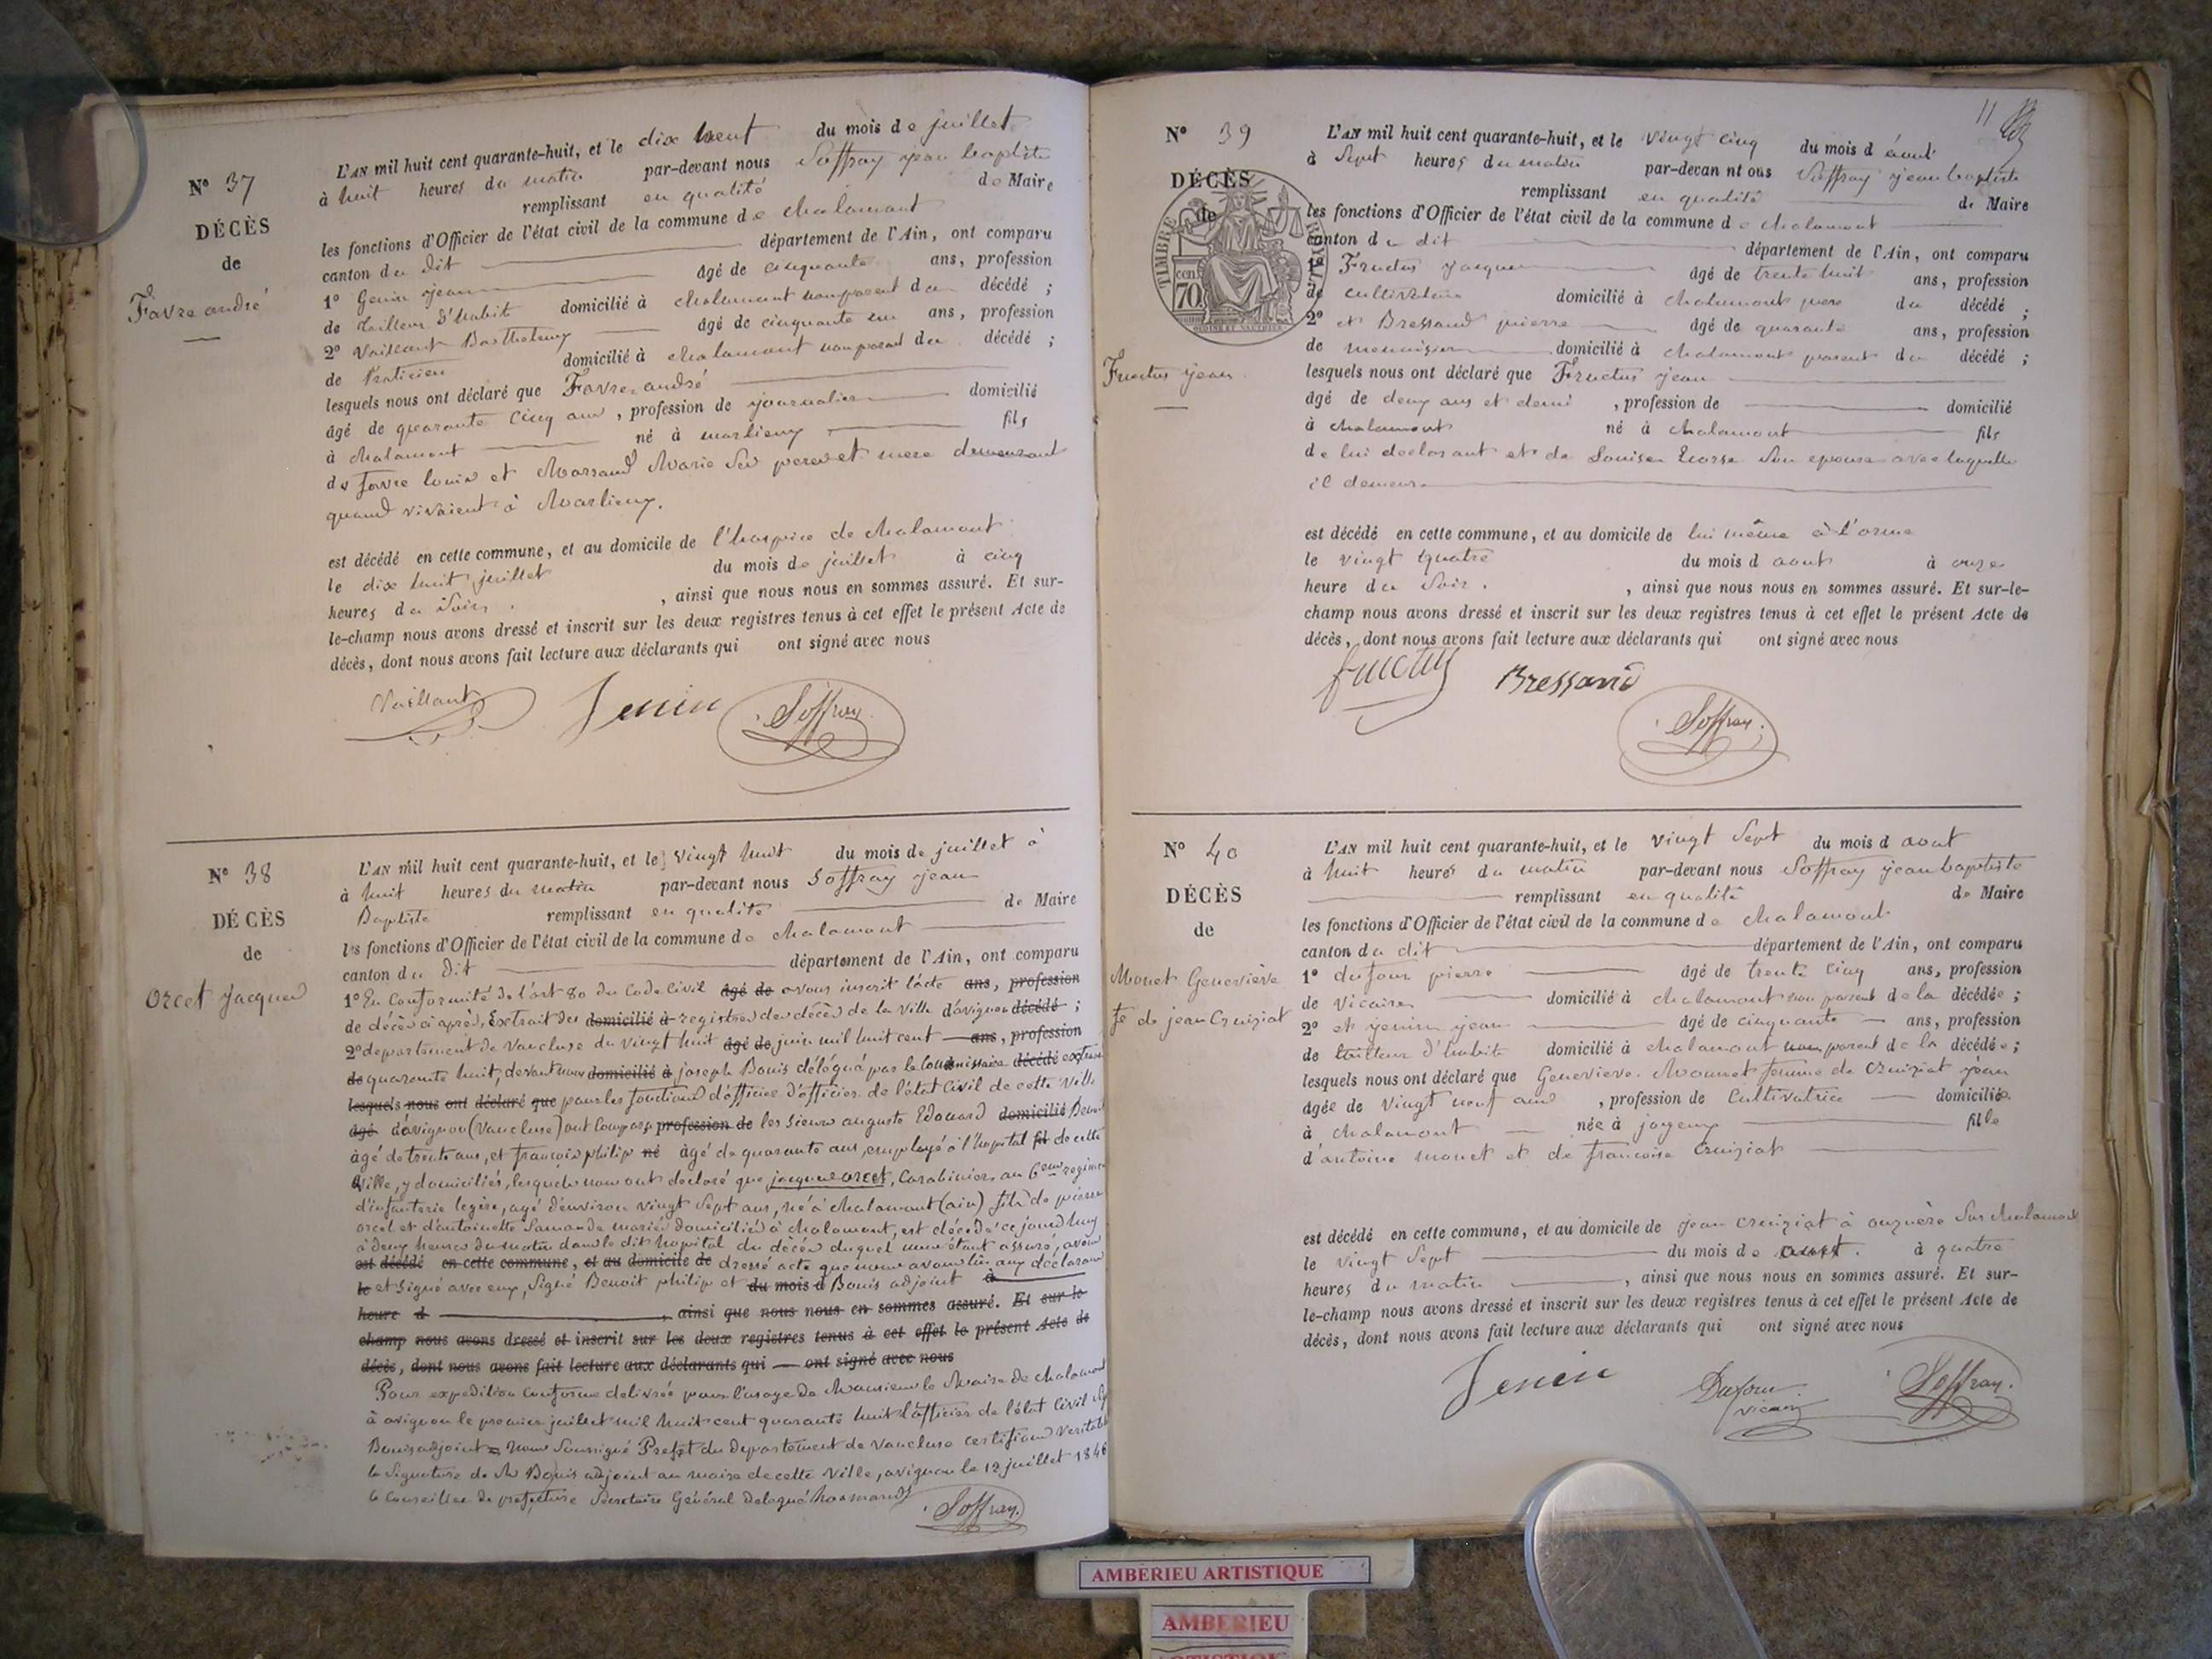 N° 37
DÉCÈS
de
Favre andré
L'AN mil huit cent quarante-huit, et le dix neuf du mois de juillet
à huit heures du matin par-devant nous Soffray jean baptiste
remplissant en qualité de Maire
les fonctions d'Officier de l'état civil de la commune de chalamont
canton du dit département de l'Ain, ont comparu
1° Genin jean âgé de cinquante ans, profession
de tailleur d'habit domicilié à chalamont non parent du décédé ;
2° Vaillant Barthelemy âgé de cinquante un ans, profession
de Praticien domicilié à chalamont non parent du décédé ;
lesquels nous ont déclaré que Favre andré
âgé de quarante cinq ans, profession de journalier domicilié
à chalamont né à marlieux fils
de favre louis et Marie ses pere et mere demeurant
quand vivaient à Marlieux.
est décédé en cette commune, et au domicile de l'hospice de chalamont
le dix huit juillet du mois de juillet à cinq
heures du soir. , ainsi que nous nous en sommes assuré. Et sur-
le-champ nous avons dressé et inscrit sur les deux registres tenus à cet effet le présent Acte de
décès, dont nous avons fait lecture aux déclarants qui ont signé avec nous
Vaillant Jenin Soffray
N° 38
DÉCÈS
de
Orcet jacques
L'AN mil huit cent quarante-huit, et le vingt huit du mois de juillet à
à huit heures du matin par-devant nous Soffray jean
Baptiste remplissant en qualité de Maire
les fonctions d'Officier de l'état civil de la commune de chalamont
canton du dit département de l'Ain, ont comparu
1° En conformité de l'art 80 du Code civil âgé de avons inscrit l'acte ans, profession
de décès ci après, Extrait des domicilié à registres des décès de la Ville d'avignon décédé ;
2° departement de Vaucluse du vingt huit âgé de juin mil huit cent ans, profession
de quarante huit, devant nous domicilié à joseph Bouis délégué par le Commissaire décédé
lesquels nous ont déclaré que pour les fonctions d'officier d'officier de l'état civil de cette Ville
âgé d'avignon (Vaucluse) ont comparu profession de les sieurs auguste Edouard domicilié Benoit
âgé de trente ans, et françois philip né âgé de quarante ans, employé à l'hopital fil de cette
Ville, y domiciliés, lesquels nous ont declaré que jacques orcet, Carabinier au 6eme regiment
d'infanterie legère, agé d'environ vingt sept ans, né à chalamont (ain) fils de pierre
orcet et d'antoinette mariés domiciliés à chalamont, est décédé ce jourd'huy
à deux heures du matin dans le dit hopital du décès duquel nous étant assuré, avons
est décédé en cette commune, et au domicile de dressé acte que nous avons lu aux declarants
le et signé avec eux, Signé Benoit philip et du mois d Bouis adjoint à
heure d , ainsi que nous nous en sommes assuré. Et sur le
champ nous avons dressé et inscrit sur les deux registres tenus à cet effet le présent Acte de
décès, dont nous avons fait lecture aux déclarants qui ont signé avec nous
Pour expedition conforme delivrée pour l'usage de Monsieur le Maire de chalamont
à avignon le premier juillet mil huit cent quarante huit l'officier de l'état civil
Bouis adjoint = Nous Soussigné Prefet du departement de Vaucluse certifions veritable
la signature de Mr Bouis adjoint au maire de cette Ville, avignon le 12 juillet 1848
le Conseiller de prefecture Secretaire Général delegué
Soffray
11
N° 39
DÉCÈS
de
TIMBRE
cen.
70
Fructus jean
L'AN mil huit cent quarante-huit, et le vingt cinq du mois d août
à Sept heures du matin par-devan nt ous Soffray jean baptiste
remplissant en qualité de Maire
les fonctions d'Officier de l'état civil de la commune de chalamont
canton du dit département de l'Ain, ont comparu
1° Fructus jacques âgé de trente huit ans, profession
de cultivateur domicilié à chalamont pere du décédé ;
2° et Bressand pierre âgé de quarante ans, profession
de menuisier domicilié à chalamont parent du décédé ;
lesquels nous ont déclaré que Fructus jean
âgé de deux ans et demi , profession de domicilié
à chalamont né à chalamont fils
de lui declarant et de Louise Ecorse son epouse avec laquelle
il demeure
est décédé en cette commune, et au domicile de lui même à l'orme
le vingt quatre du mois d aout à onze
heure du Soir. , ainsi que nous nous en sommes assuré. Et sur-le-
champ nous avons dressé et inscrit sur les deux registres tenus à cet effet le présent Acte de
décès, dont nous avons fait lecture aux déclarants qui ont signé avec nous
fructus Bressand
Soffray
N° 40
DÉCÈS
de
Monet Geneviève
fe de jean Cruiziat
L'AN mil huit cent quarante-huit, et le vingt Sept du mois d aout
à huit heures du matin par-devant nous Soffray jean baptiste
remplissant en qualité de Maire
les fonctions d'Officier de l'état civil de la commune de chalamont
canton du dit département de l'Ain, ont comparu
1° dufour pierre âgé de trente cinq ans, profession
de vicaire domicilié à chalamont non parent de la décédée ;
2° et jenin jean âgé de cinquante ans, profession
de tailleur d'habits domicilié à chalamont non parent de la décédée ;
lesquels nous ont déclaré que Genevieve Monnet femme de Cruiziat jean
âgée de vingt neuf ans , profession de Cultivatrice domiciliée
à chalamont née à joyeux fille
d'antoine monet et de francoise Cruiziat
est décédé en cette commune, et au domicile de jean cruiziat à sur chalamont
le vingt Sept du mois de aout. à quatre
heures du matin , ainsi que nous nous en sommes assuré. Et sur-
le-champ nous avons dressé et inscrit sur les deux registres tenus à cet effet le présent Acte de
décès, dont nous avons fait lecture aux déclarants qui ont signé avec nous
Jenin Dufour Soffray
vicaire
AMBERIEU ARTISTIQUE
AMBERIEU
ARTISTIQUE